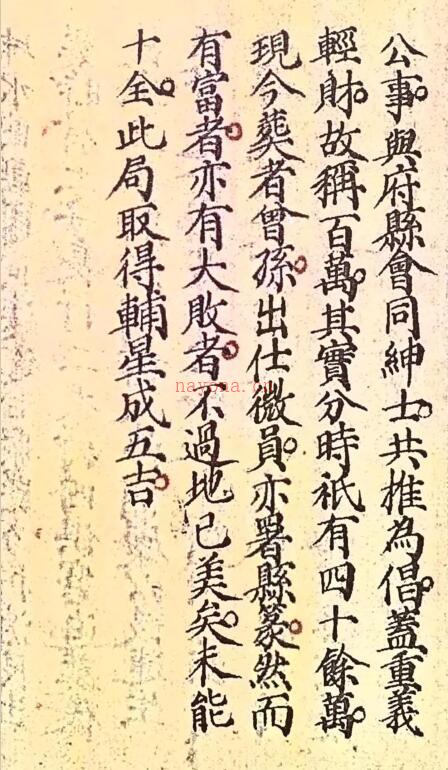 公事與府縣會同紳士共推為倡蓋重義
輕財故稱百萬其實分時祇有四十餘萬
現今葬者曾孫出仕微員亦署縣篆然而
有富者亦有大敗者不過地已美矣未能
十全此局取得輔星成五吉